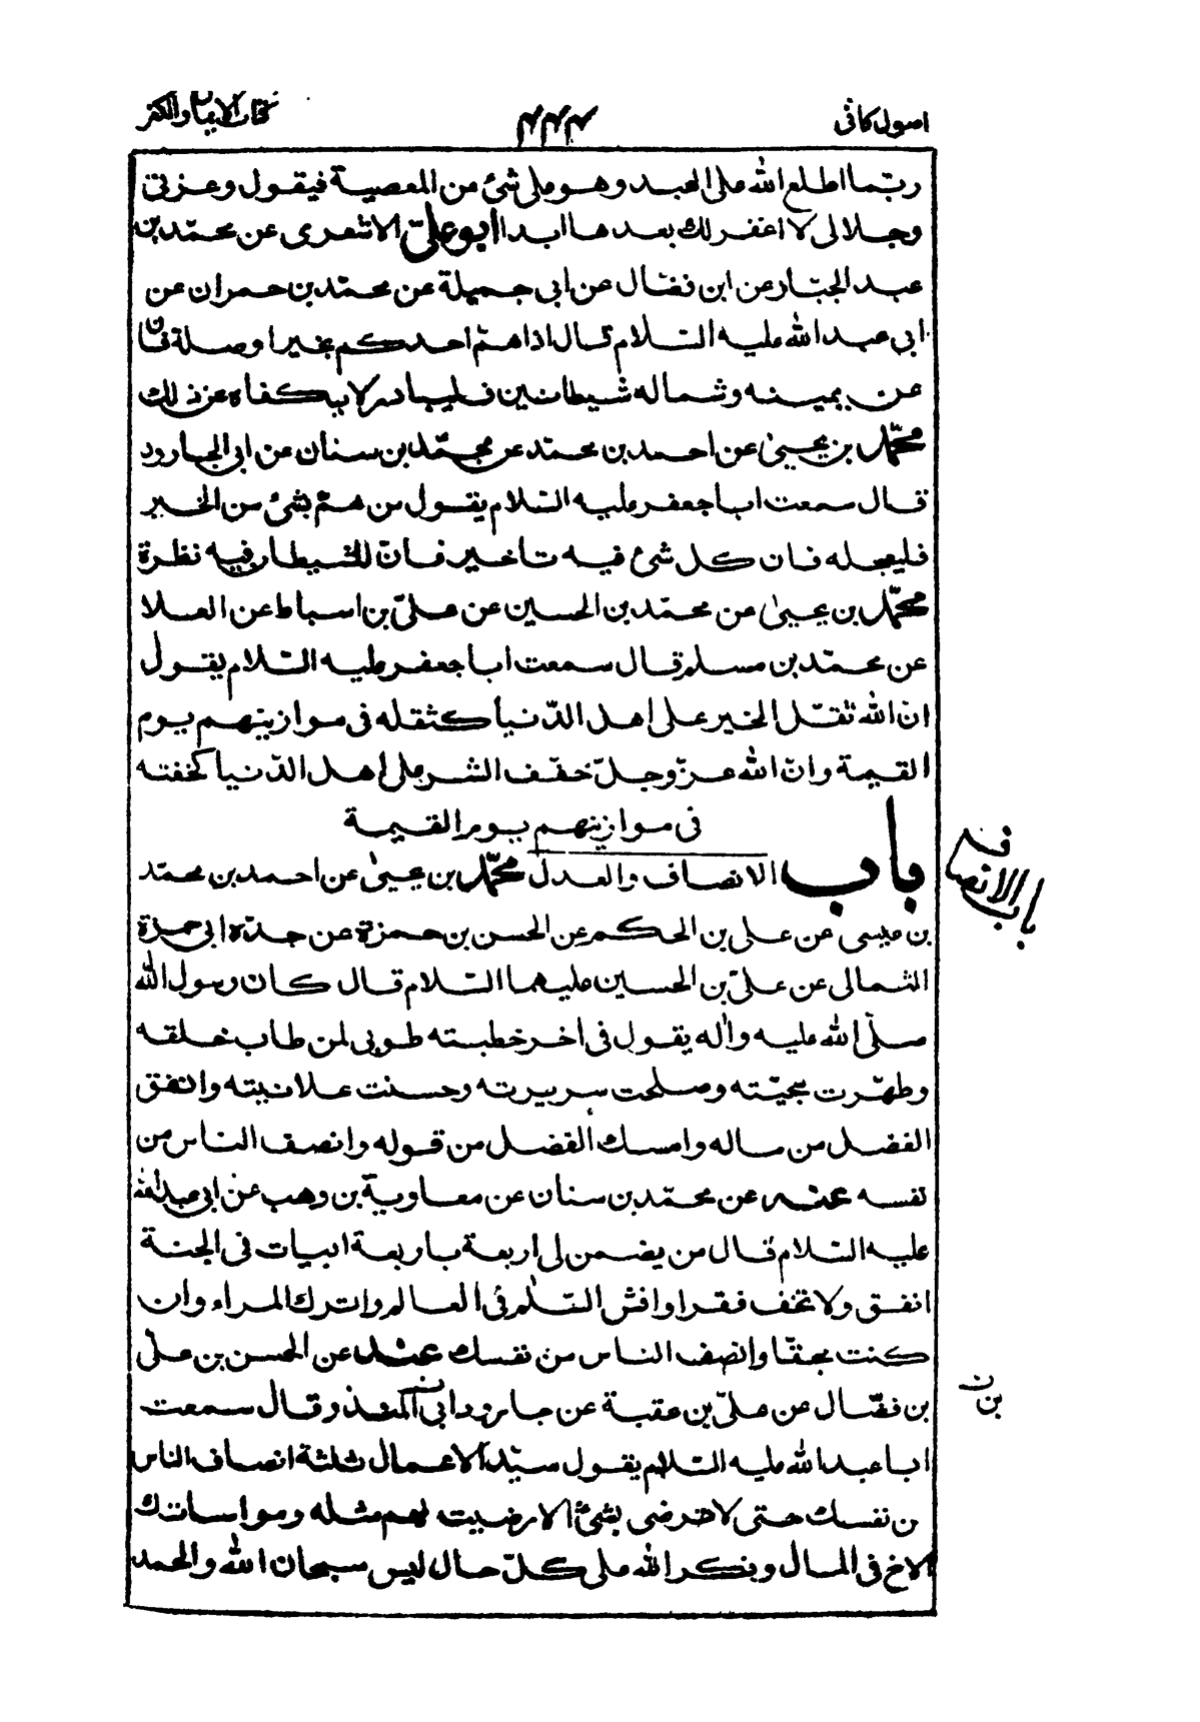 اصول كافى ٤٤٤ كتاب الايمان والكفر
ربّما اطلع الله على العبد وهو على شئ من المعصية فيقول وعزتى
وجلالى لا اغفر لك بعدها ابدا ابو علىّ الاشعرى عن محمّد بن
عبد الجبّار عن ابن فضّال عن ابى جميلة عن محمّد بن حمران عن
ابى عبد الله عليه السّلام قال اذا همّ احدكم بخير او صلة فان
عن يمينه وشماله شيطانين فليبادر لا يكفاه عن ذلك
محمّد بن يحيىٰ عن احمد بن محمّد عن محمّد بن سنان عن ابى الجارود
قال سمعت ابا جعفر عليه السّلام يقول من همّ بشئ من الخير
فليعجله فان كل شئ فيه تاخير فانّ للشيطان فيه نظرة
محمّد بن يحيىٰ عن محمّد بن الحسين عن علىّ بن اسباط عن العلا
عن محمّد بن مسلم قال سمعت ابا جعفر عليه السّلام يقول
انّ الله ثقّل الخير على اهل الدّنيا كثقله فى موازينهم يوم
القيمة وانّ الله عزّ وجلّ خفّف الشر على اهل الدّنيا كخفته
فى موازينهم يوم القيمة
باب الانصاف والعدل محمّد بن يحيىٰ عن احمد بن محمّد
باب الانصاف
بن عيسى عن على بن الحكم عن الحسن بن حمزة عن جدّه ابى حمزة
الثمالى عن علىّ بن الحسين عليهما السّلام قال كان رسول الله
صلّى الله عليه واٰله يقول فى اخر خطبته طوبى لمن طاب خلقه
وطهّرت سجيّته وصلحت سريرته وحسنت علانيته وانفق
الفضل من ماله وامسك الفضل من قوله وانصف الناس من
نفسه عنه عن محمّد بن سنان عن معاوية بن وهب عن ابى عبد الله
عليه السّلام قال من يضمن لى اربعة باربعة ابيات فى الجنة
انفق ولا تخف فقرا وافش السّلام فى العالم واترك المراء وان
كنت محقّا وانصف الناس من نفسك عنه عن الحسن بن علىّ
بن فضّال عن علىّ بن عقبة عن جارود ابى المنذر قال سمعت
بن
ابا عبد الله عليه السّلام يقول سيّد الاعمال ثلثة انصاف الناس
من نفسك حتى لا ترضى بشئ الا رضيت لهم مثله ومواساتك
الاخ فى المال وذكر الله على كلّ حال ليس سبحان الله والحمد